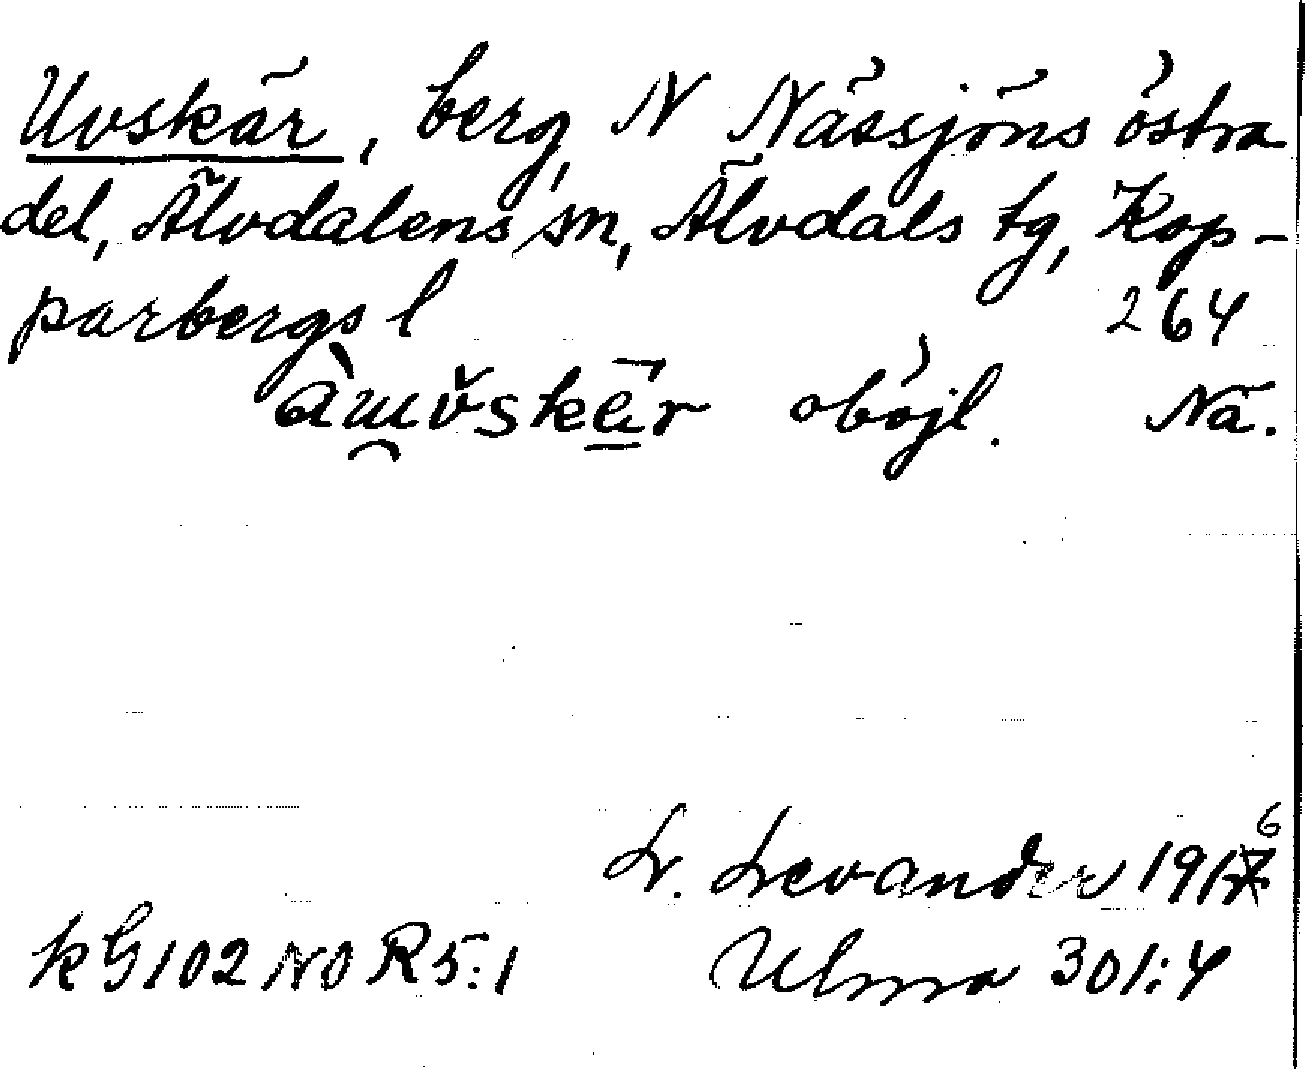 Uvskär, berg, N Nässjöns östra
del, Älvdalens sn, Älvdals tg, Kop-
parbergs l 264
oböjl. Nä.
L. Levander 1916
kG102 NO R5:1 Ulma 301:4